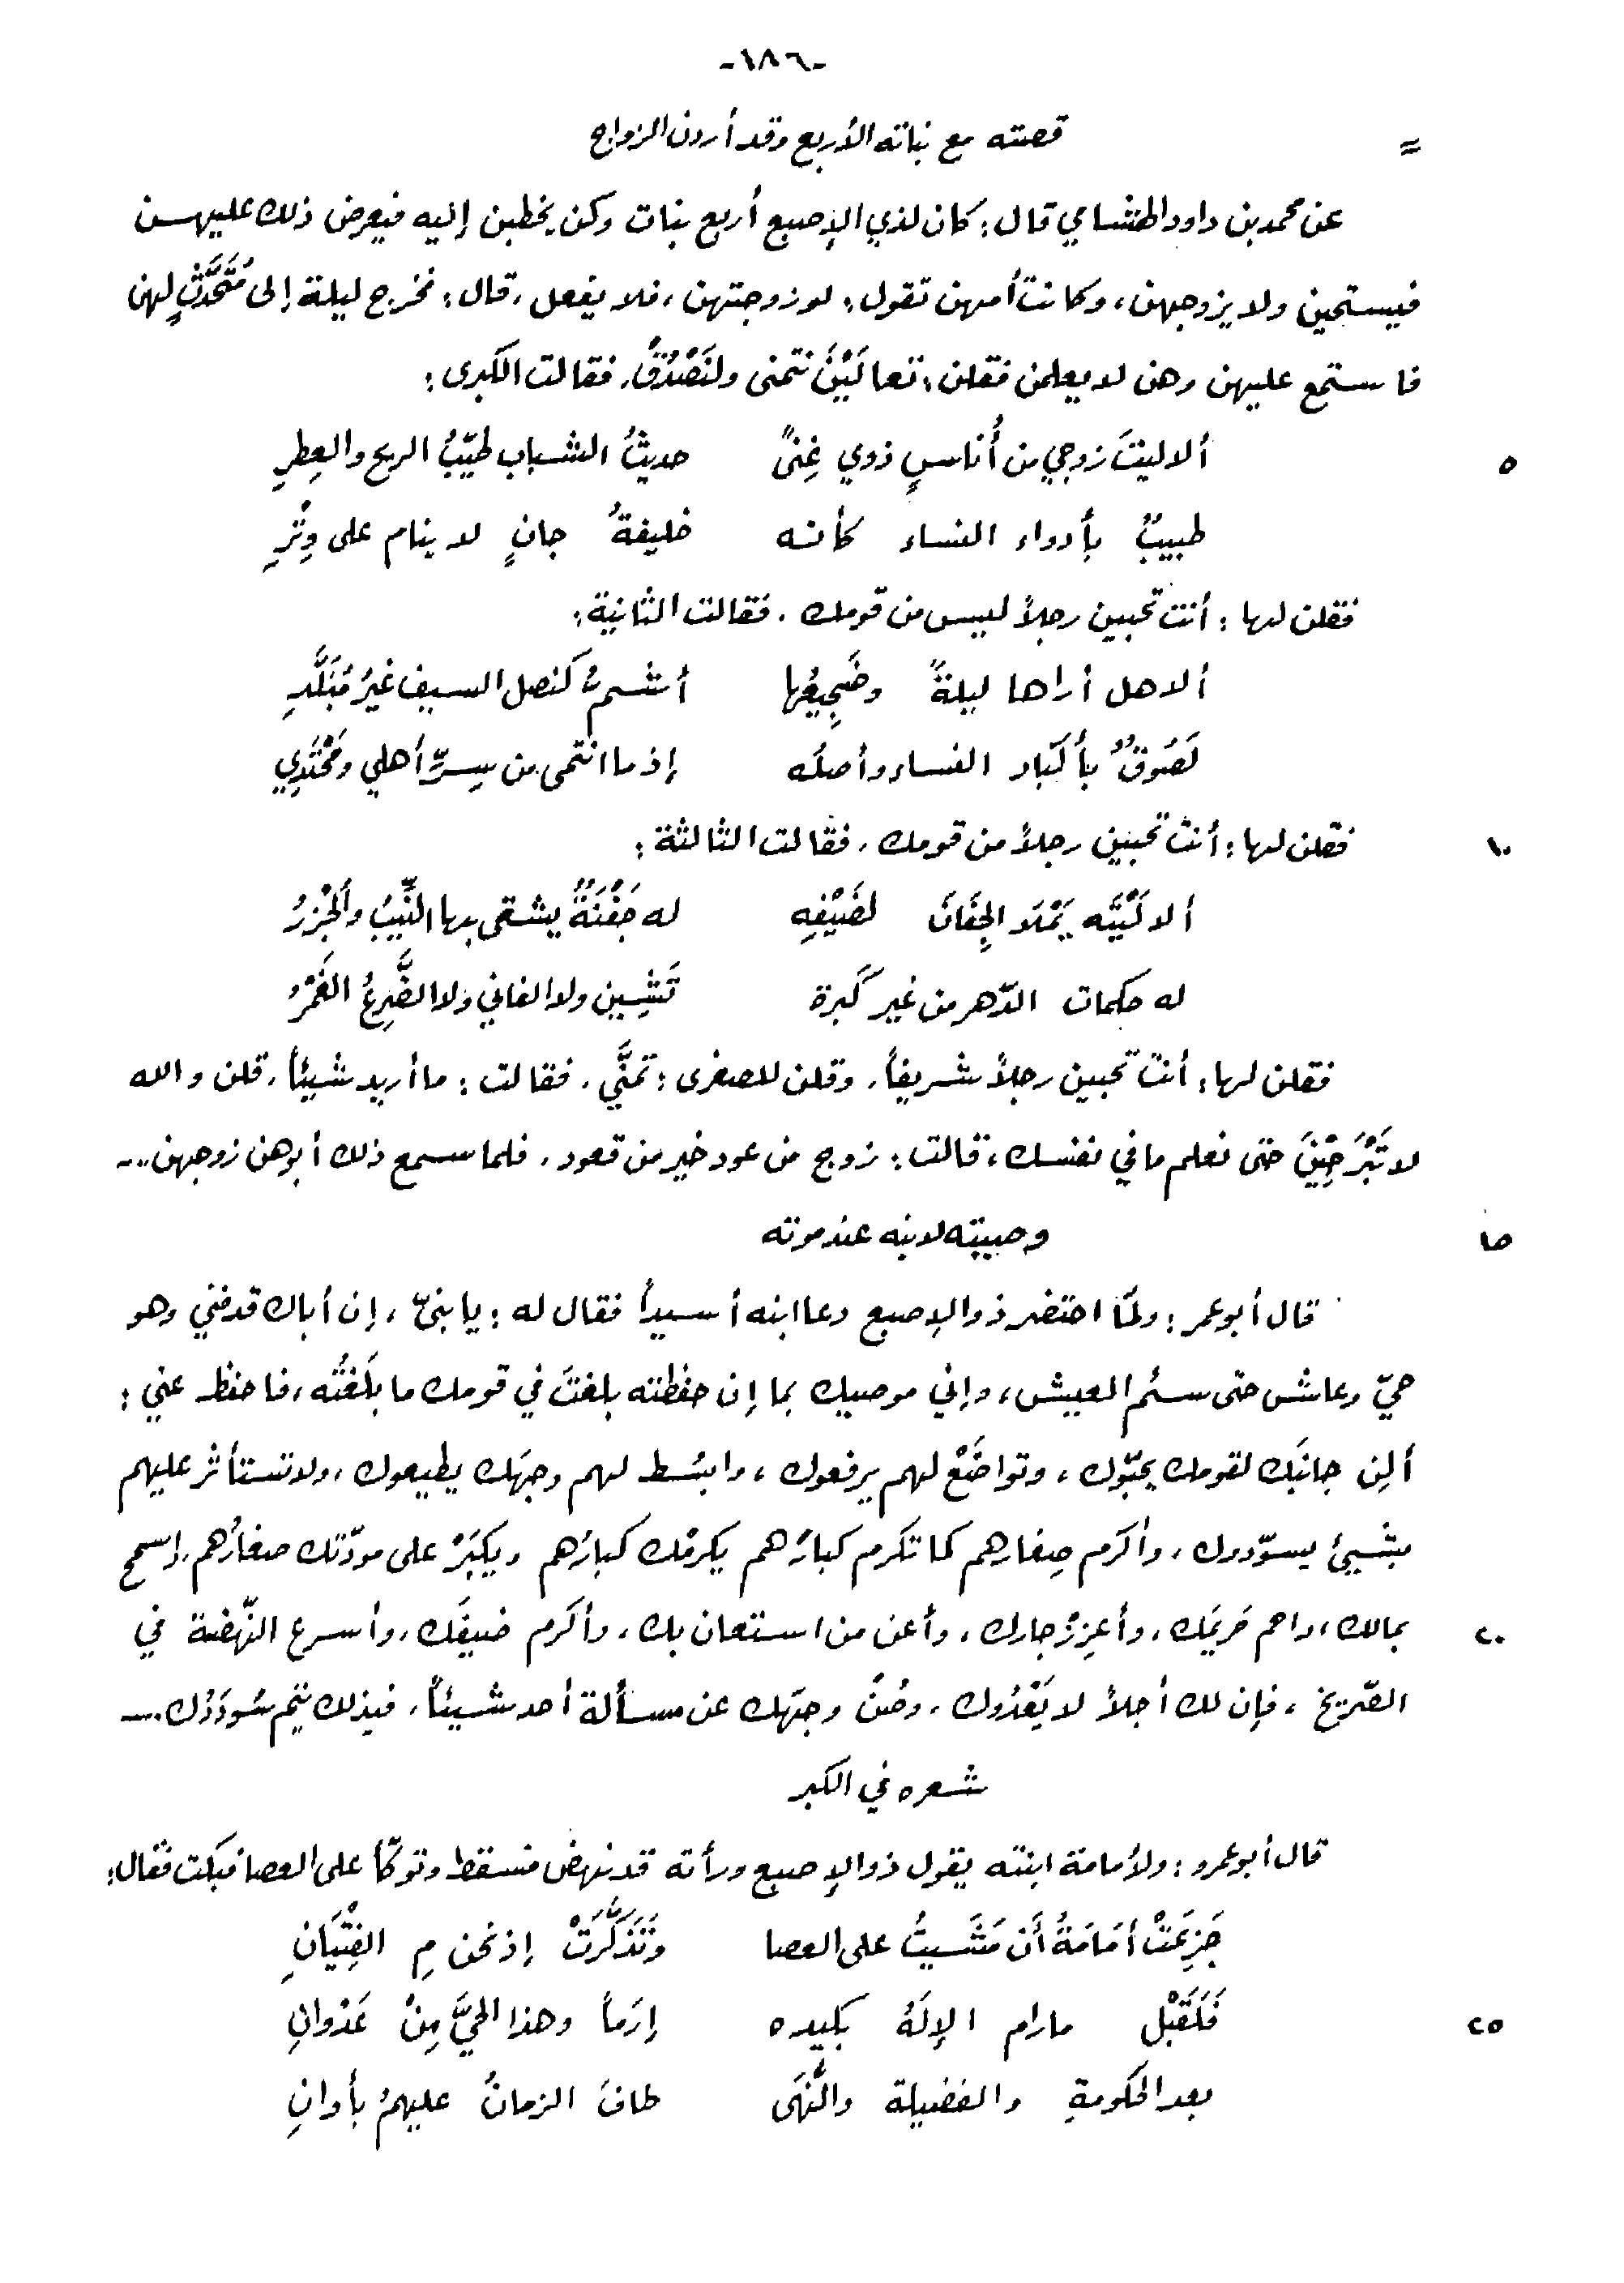 -١٨٦-
= قصته مع بناته الأربع وقد أردن الزواج
عن محمد بن داود الهشامي قال: كان لذي الإصبع أربع بنات وكن يخطبن إليه فيعرض ذلك عليهن
فيستحين ولا يزوجهن، وكانت أمهن تقول: لو زوجتهن، فلا يفعل، قال: فخرج ليلة إلى مُتَحَدَّثٍ لهن
فاستمع عليهن وهن لا يعلمن فقلن: تعالَيْنَ نتمنى ولنَصْدُقْ، فقالت الكبرى:
ألا ليتَ زوجي من أُناسٍ ذوي غِنىً حديثُ الشباب طيّبُ الريح والعِطرِ ٥
طبيبٌ بأدواء النساء كأنه خليفةُ جانٍ لا ينام على وِتْرِ
فقلن لها: أنت تحبين رجلاً ليس من قومك. فقالت الثانية:
ألا هل أراها ليلةً وضَجِيعُها أشمُّ كنصل السيف غيرُ مُبَلَّدِ
لَصُوقٌ بأكباد النساء وأصله إذ ما انتمى من سِرِّ أهلي ومَحْتِدِي
فقلن لها: أنت تحبين رجلاً من قومك، فقالت الثالثة: ١٠
ألا لَيْتَه يَمْلَا الجِفَانَ لضَيْفِهِ له جَفْنَةٌ يشقى بها النِّيبُ والجُزرُ
له حكمات الدّهر من غير كَبرة تَشِين ولا الفاني ولا الضَّرِعُ الغَمْرُ
فقلن لها: أنت تحبين رجلاً شريفاً، وقلن للصغرى: تمنَّي، فقالت: ما أريد شيئاً، قلن والله
لا تَبْرَحِينَ حتى نعلم ما في نفسك، قالت: زوج من عود خير من قعود. فلما سمع ذلك أبوهن زوجهن...
وصيته لابنه عند موته ١٥
قال أبو عمر: ولمّا احتضر ذو الإصبع دعا ابنه أسيداً فقال له: يا بنيّ، إن أباك قد فني وهو
حيّ وعاش حتى سئم العيش، وإني موصيك بما إن حفظته بلغتَ في قومك ما بلَغتُه، فاحفظ عني:
ألِن جانبَك لقومك يحبّوك، وتواضَعْ لهم يرفعوك، وابسُط لهم وجهَك يطيعوك، ولا تستأثر عليهم
بشيئ يسوّدوك، وأكرم صِغارهم كما تكرم كبارَهم يكرمْك كبارُهم ويكبَرْ على مودّتك صغارُهم، إسمح
بمالك، واحم حَريمَك، وأعزِزْ جارك، وأعن من استعان بك، وأكرم ضيفَك، وأسرع النّهضة في ٢٠
الصّريخ، فإن لك أجلاً لا يَعْدُوك، وصُنْ وجهَك عن مسألة أحد شيئاً، فبذلك يتم سُودَدُك...
شعره في الكبر
قال أبو عمرو: ولأمامة ابنته يقول ذو الإصبع ورأته قد نهض فسقط وتوكّأ على العصا فبكت فقال:
جَزِعَتْ أمَامَةُ أَن مَشَيتُ على العصا وَتَذَكَّرَتْ إذ نحن مِ الفِتْيَانِ
فَلَقَبْل مارام الإلَهُ بكيده إرَماً وهذا الحيَّ مِنْ عَدْوانِ ٢٥
بعد الحكومةِ والفضيلة والنُّهَى طافَ الزمانُ عليهمُ بأوانِ